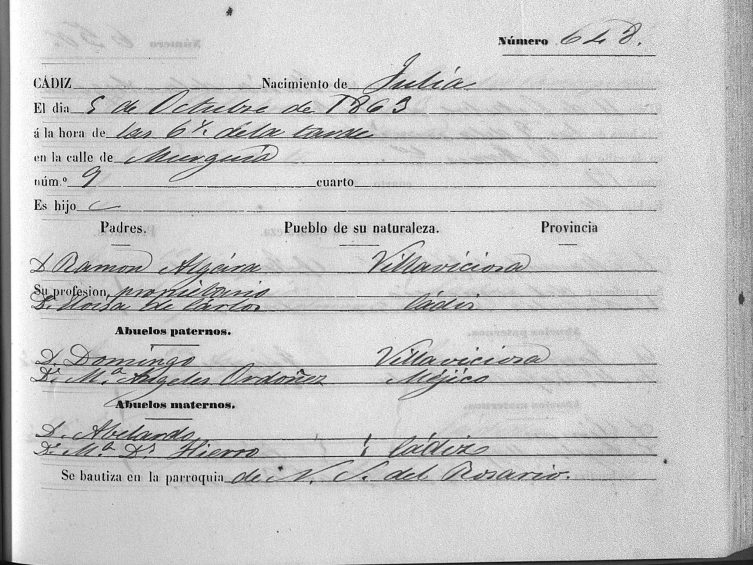 Número 648.
CÁDIZ Nacimiento de Julia
El dia 5 de Octubre de 1863
á la hora de las 6½ de la tarde
en la calle de Murguia
núm.º 9 cuarto
Es hijo
Padres. Pueblo de su naturaleza. Provincia
D. Ramon Algeira Villaviciosa
Su profesion, propietario
D.ª Eloisa de Carlos Cádiz
Abuelos paternos.
D. Domingo Villaviciosa
D.ª M.ª Angeles Ordoñez Méjico
Abuelos maternos.
D. Abelardo
D.ª M.ª D.s Hierro Cádiz
Se bautiza en la parroquia de N. S. del Rosario.